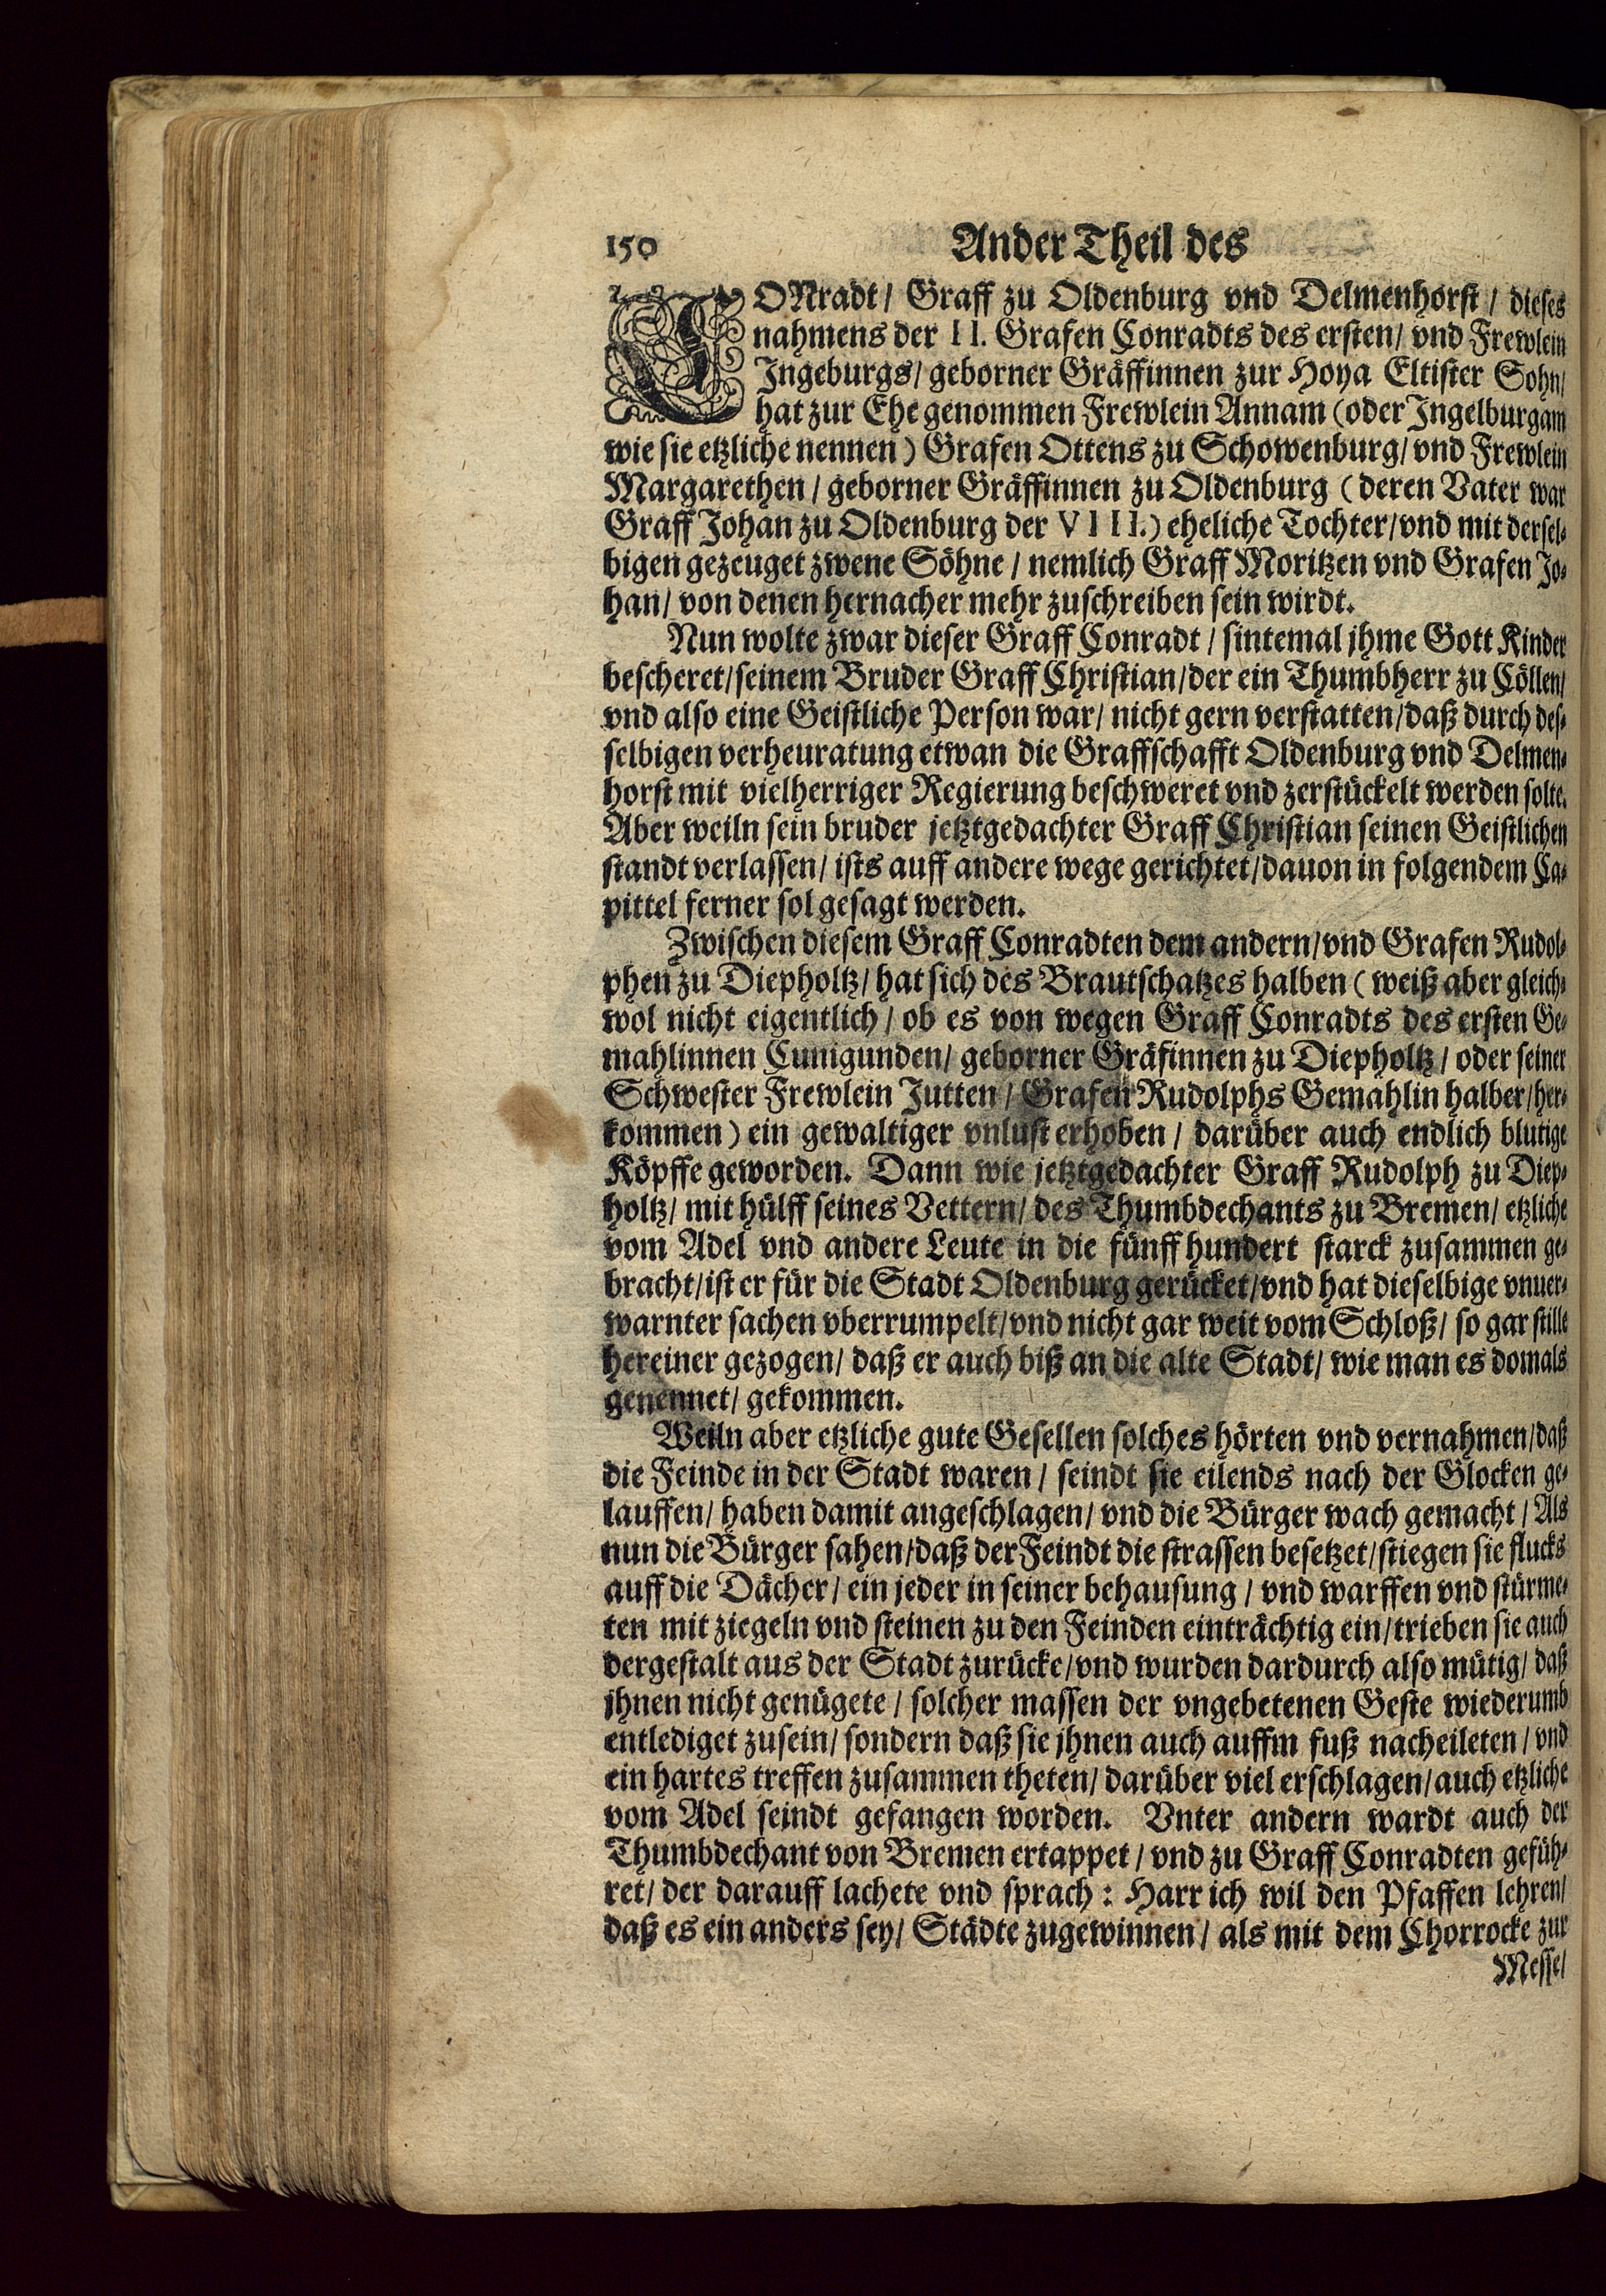 150 Ander Theil des
CONradt / Graff zu Oldenburg vnd Delmenhorst / dieses
nahmens der II. Grafen Conradts des ersten / vnd Frewlein
Ingeburgs / geborner Gräffinnen zur Hoya Eltister Sohn /
hat zur Ehe genommen Frewlein Annam (oder Ingelburgam
wie sie etzliche nennen) Grafen Ottens zu Schowenburg / vnd Frewlein
Margarethen / geborner Gräffinnen zu Oldenburg (deren Vater war
Graff Johan zu Oldenburg der VIII.) eheliche Tochter / vnd mit dersel-
bigen gezeuget zwene Söhne / nemlich Graff Moritzen vnd Grafen Jo-
han / von denen hernacher mehr zuschreiben sein wirdt.
Nun wolte zwar dieser Graff Conradt / sintemal jhme Gott Kinder
bescheret / seinem Bruder Graff Christian / der ein Thumbherr zu Cöllen /
vnd also eine Geistliche Person war / nicht gern verstatten / daß durch des-
selbigen verheuratung etwan die Graffschafft Oldenburg vnd Delmen-
horst mit vielherriger Regierung beschweret vnd zerstückelt werden solte.
Aber weiln sein bruder jetztgedachter Graff Christian seinen Geistlichen
standt verlassen / ists auff andere wege gerichtet / dauon in folgendem Ca-
pittel ferner sol gesagt werden.
Zwischen diesem Graff Conradten dem andern / vnd Grafen Rudol-
phen zu Diepholtz / hat sich des Brautschatzes halben (weiß aber gleich-
wol nicht eigentlich / ob es von wegen Graff Conradts des ersten Ge-
mahlinnen Cunigunden / geborner Gräfinnen zu Diepholtz / oder seiner
Schwester Frewlein Jutten / Grafen Rudolphs Gemahlin halber / her-
kommen) ein gewaltiger vnlust erhoben / darüber auch endlich blutige
Köpffe geworden. Dann wie jetztgedachter Graff Rudolph zu Diep-
holtz / mit hülff seines Vettern / des Thumbdechants zu Bremen / etzliche
vom Adel vnd andere Leute in die fünff hundert starck zusammen ge-
bracht / ist er für die Stadt Oldenburg gerücket / vnd hat dieselbige vnuer-
warnter sachen vberrumpelt / vnd nicht gar weit vom Schloß / so gar stille
hereiner gezogen / daß er auch biß an die alte Stadt / wie man es domals
genennet / gekommen.
Weiln aber etzliche gute Gesellen solches hörten vnd vernahmen / daß
die Feinde in der Stadt waren / seindt sie eilends nach der Glocken ge-
lauffen / haben damit angeschlagen / vnd die Bürger wach gemacht / Als
nun die Bürger sahen / daß der Feindt die strassen besetzet / stiegen sie flucks
auff die Dächer / ein jeder in seiner behausung / vnd warffen vnd stürme-
ten mit ziegeln vnd steinen zu den Feinden einträchtig ein / trieben sie auch
dergestalt aus der Stadt zurücke / vnd wurden dardurch also mütig / daß
jhnen nicht genügete / solcher massen der vngebetenen Geste wiederumb
entlediget zusein / sondern daß sie jhnen auch auffm fuß nacheileten / vnd
ein hartes treffen zusammen theten / darüber viel erschlagen / auch etzliche
vom Adel seindt gefangen worden. Vnter andern wardt auch der
Thumbdechant von Bremen ertappet / vnd zu Graff Conradten gefüh-
ret / der darauff lachete vnd sprach : Harr ich wil den Pfaffen lehren /
daß es ein anders sey / Städte zugewinnen / als mit dem Chorrocke zur
Messe /